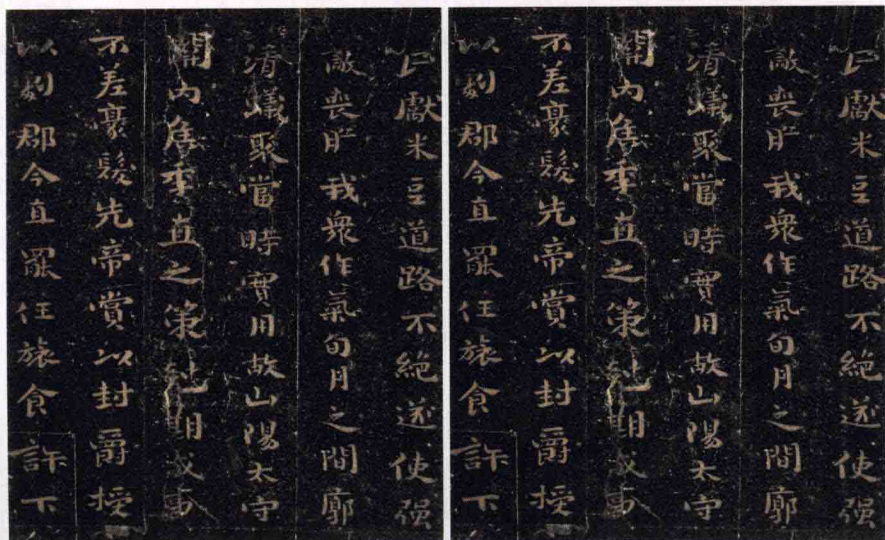 民獻米豆道路不絕遂使强
敵喪膽我衆作氣旬月之間廓
清蟻聚當時實用故山陽太守
關内侯季直之策剋期成事
不差豪髮先帝賞以封爵授
以劇郡今直罷任旅食許下
民獻米豆道路不絕遂使强
敵喪膽我衆作氣旬月之間廓
清蟻聚當時實用故山陽太守
關内侯季直之策剋期成事
不差豪髮先帝賞以封爵授
以劇郡今直罷任旅食許下